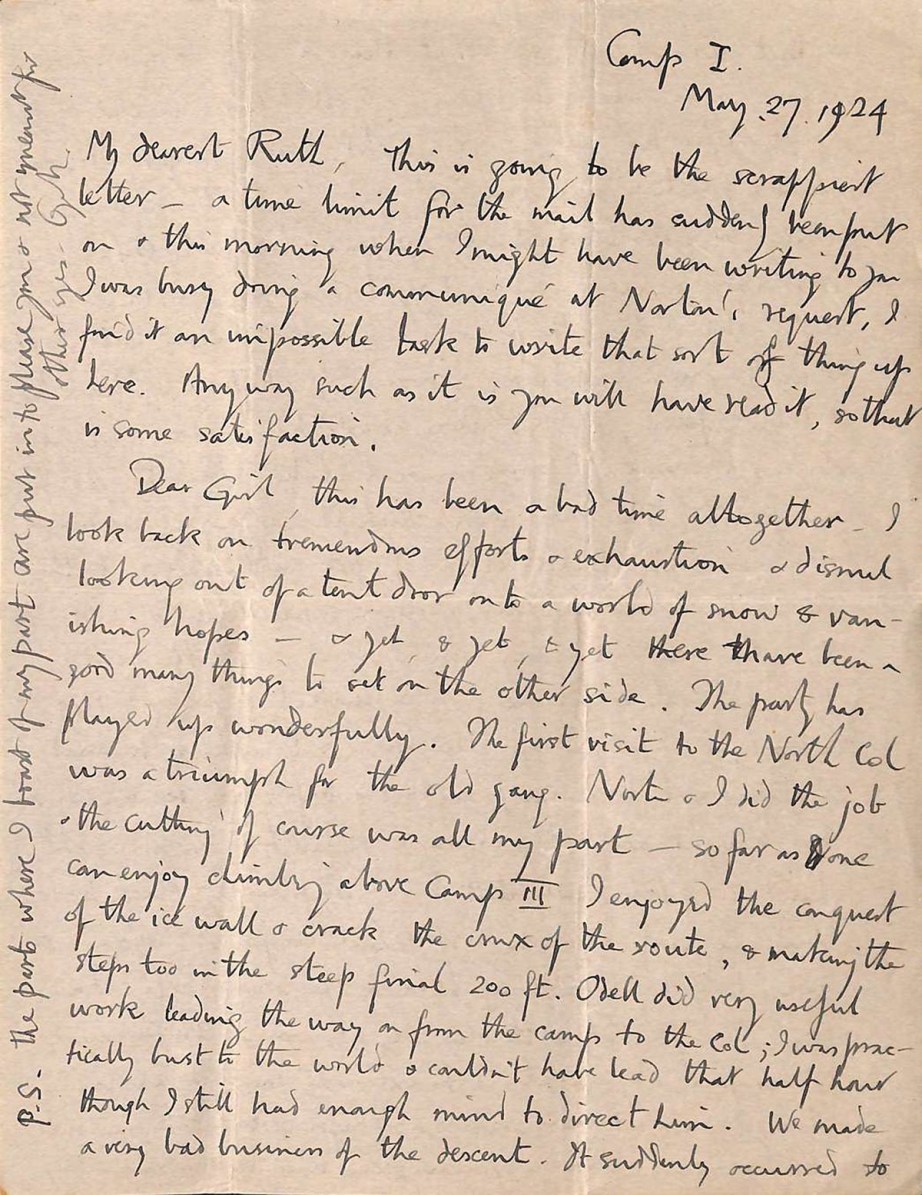 Camp I.
May.27.1924
My dearest Ruth, This is going to be the scrappiest
letter – a time limit for the mail has suddenly been put
on & this morning when I might have been writing to you
I was busy doing a communiqué at Norton's request, I
find it an impossible task to write that sort of thing up
here. Anyway such as it is you will have read it, so that
is some satisfaction.
Dear Girl, this has been a bad time altogether – I
look back on tremendous efforts & exhaustion & dismal
looking out of a tent door onto a world of snow & van-
ishing hopes – & yet, & yet, & yet there have been a
good many things to set on the other side. The party has
played up wonderfully. The first visit to the North Col
was a triumph for the old gang. Norton & I did the job
& the cutting of course was all my part – so far as one
can enjoy climbing above Camp III I enjoyed the conquest
of the ice wall & crack the crux of the route, & making the
steps too in the steep final 200 ft. Odell did very useful
work leading the way on from the camp to the Col; I was prac-
tically bust to the world & couldn't have lead that half hour
though I still had enough mind to direct him. We made
a very bad business of the descent. It suddenly occurred to
P.S. The parts where I boast of my part are put in to please you & not meant for
other eyes – G.M.